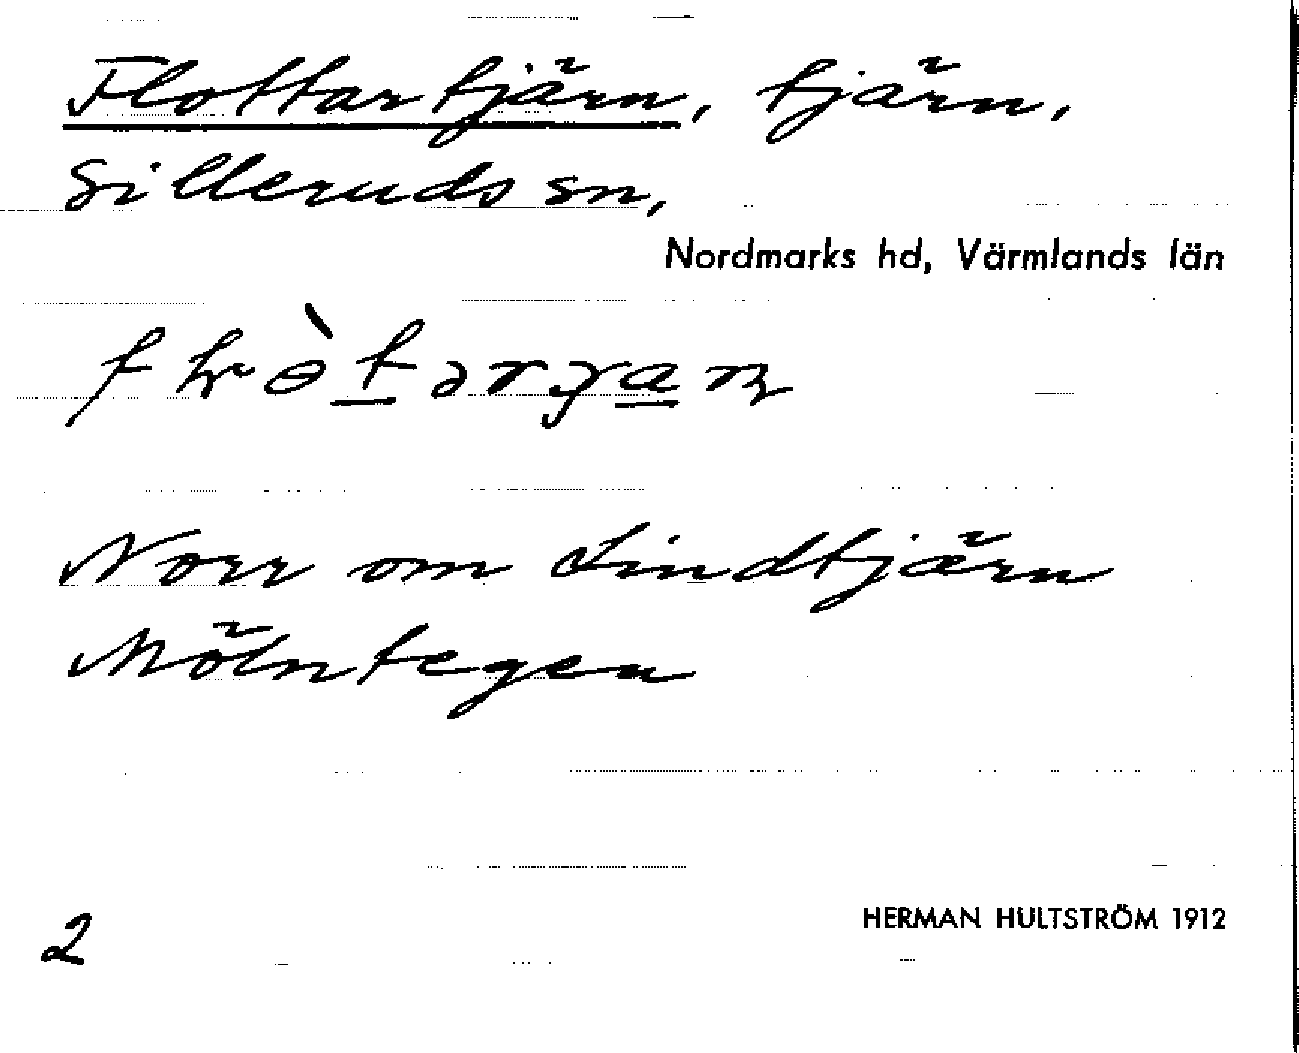 Flottartjärn, tjärn,
Silleruds sn,
Nordmarks hd, Värmlands län
Norr om Lindtjärn
Mölntegen
HERMAN HULTSTRÖM 1912
2